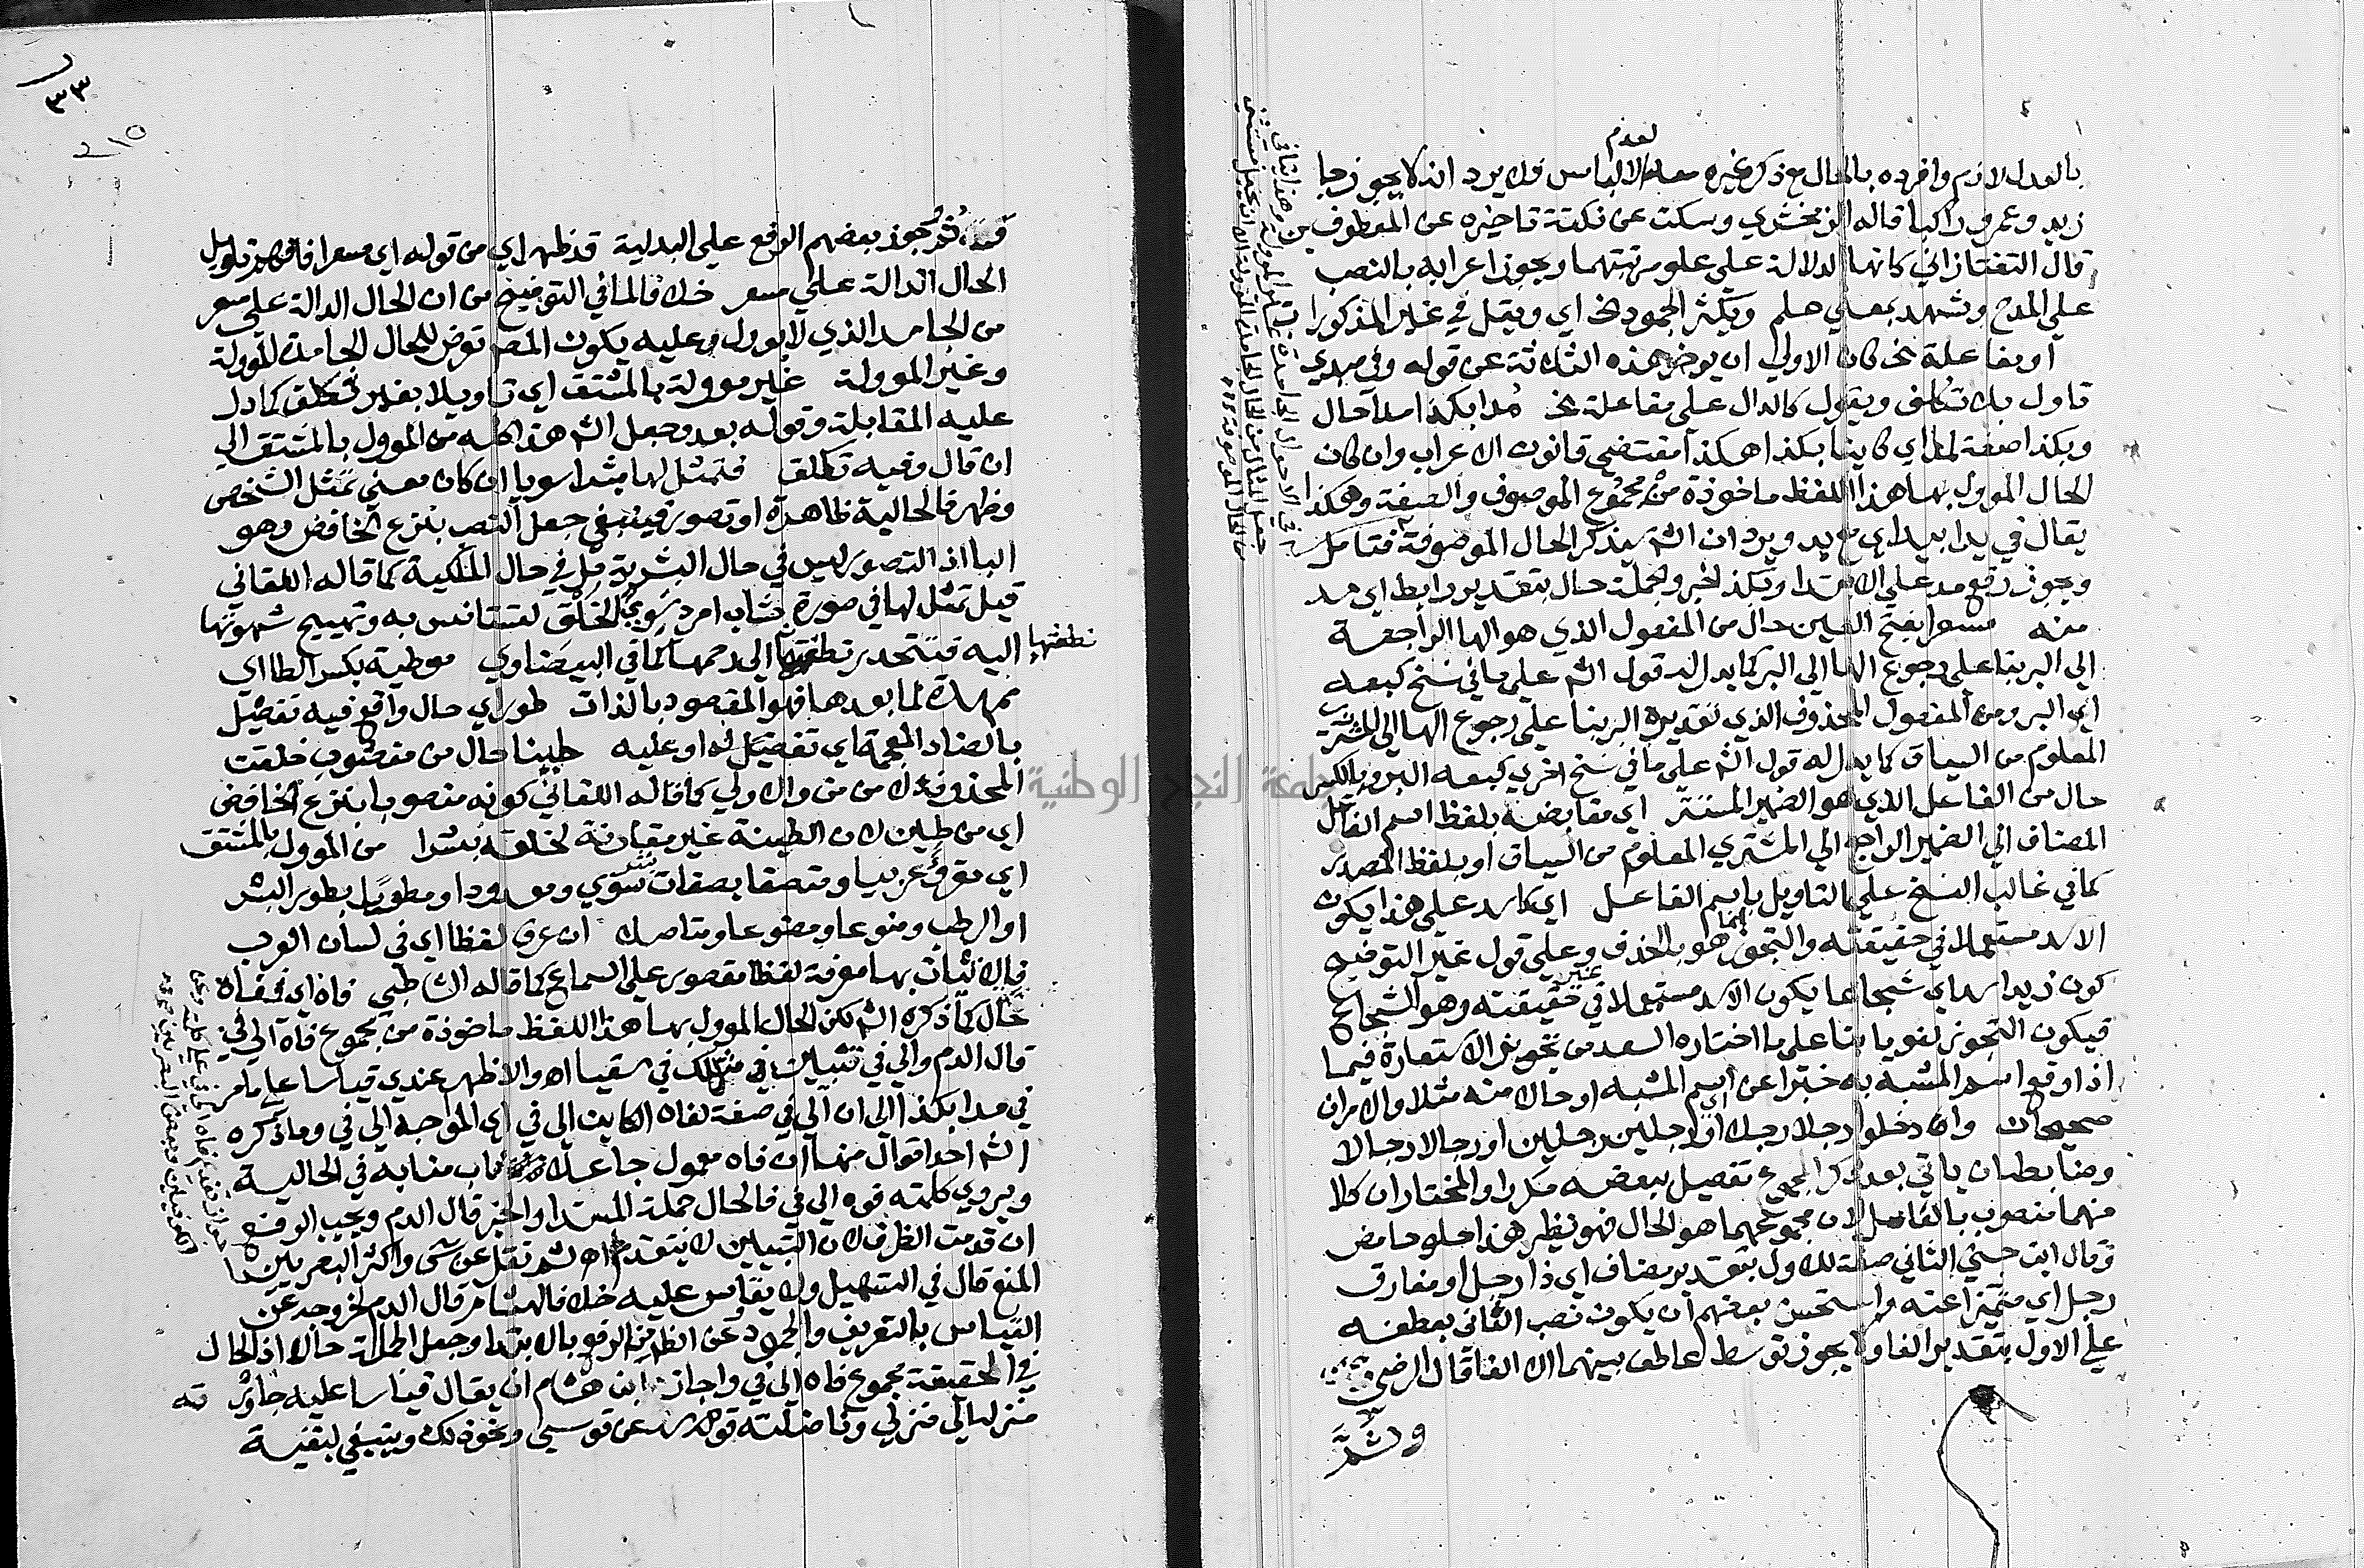 لعدم
بالعدل لازم وافرده بالحال مع ذكره غيره معه الالباس ولا يرد انه لا يجوز جا
زيد وعمرو راكبا قاله الزمخشري وسكت عن نكتة تاخيره عن المعطوفين
قال التفتازاني كانها الدلالة على علو مرتبتهما ويجوز اعرابه بالنصب
على المدح وشهد بمعني علم ويكثر الجمود الخ اي ويقل في غير المذكورات
او مفاعلة الخ كان الاولي ان يوخر هذه الثلاثة عن قوله وفي مبدي
تاول بلا تكلف ويقول كالدال علي مفاعلة الخ مدا بكذا مدا حال
وبكذا صفة لمدا اي كاينا بكذا هكذا مقتضي قانون الاعراب وان كان
الحال الموول بها هذا اللفظ ماخوذة من مجموع الموصوف والصفة وهكذا
يقال في يدا بيد اي مع يد ويرد ان الش سيذكر الحال الموصوفة فتامل
ويجوز رفع مد علي الابتدا وبكذا لخبر والجملة حال بتقدير رابط اي مد
منه مسعرا بفتح العين حال من المفعول الذي هو الها الراجعة
الي البر بنا علي رجوع الها الي البر كما يدل له قول الش علي ما في نسخ كبعه
اي البر ومن المفعول المحذوف الذي تقديره البر بنا علي رجوع الها الي المشتري
المعلوم من السياق كما يدل له قول الش علي ما في نسخ اخري كبعه البر وبالكسر
حال من الفاعل الذي هو الضمير المستتر اي مقابضه بلفظ اسم الفاعل
المضاف الي الضمير الراجع الي المشتري المعلوم من السياق او بلفظ المصدر
كما في غالب النسخ علي التاويل باسم الفاعل اي كاسد علي هذا يكون
الاسد مستعملا في حقيقته والتجوز انما هو بالحذف وعلي قول غير التوضيح
كون زيد اسدا اي شجاعا يكون الاسد مستعملا في غير حقيقته وهو الشجاع
فيكون التجوز لغويا بنا علي ما اختاره السعد من تجويز الاستعارة فيما
اذا وقع اسم المشبه به خبرا عن اسم المشبه او حالا منه مثلا والامران
صحيحان وادخلوا رجلا رجلا اي او رجلين رجلين او رجالا رجالا
وضابطه ان ياتي بعد ذكر المجموع تفصيل ببعضه مكررا والمختار ان كلا
منهما منصوب بالعامل لان مجموعهما هو الحال فهو نظير هذا حلو حامض
وقال ابن جني الثاني صفة للاول بتقدير مضاف اي ذا رجل او مفارق
رجل اي متميزا عنه واستحسن بعضهم ان يكون نصب الثاني بعطفه
علي الاول بتقدير الفا ولا يجوز توسط عاطف بينهما الا الفا قال الرضي
وثم
٣٣
فقد ثم جوز بعضهم الرفع علي البدلية قد ظهر اي من قوله اي مسعرا فافهم تاويل
الحال الدالة علي سعر خلافا لما في التوضيح من ان الحال الدالة علي سعر
من الجامد الذي لا يوول وعليه يكون المص تعرض للحال الجامدة المؤولة
وغير الموولة غير موولة بالمشتق اي تاويلا بغير تكلف كما دل
عليه المقابلة وقوله بعد وجعل الش هذا كله من الموول بالمشتق الي
ان قال وفيه تكلف فتمثل لها بشرا سويا ان كان معني تمثل تشخص
وظهر فالحالية ظاهرة او تصور فينبغي جعل النصب بنزع الخافض وهو
البا اذ التصور ليس في حال البشرية بل في حال الملكية كما قاله اللقاني
قيل تمثل لها في صورة شاب امرد سوي الخلق لتستانس به وتهييج شهوتها
اليه فتتحدر نطفتها الي رحمها كما في البيضاوي موطية بكسر الطا اي
ممهدة لما بعدها فهو المقصود بالذات طور اي حال واقع فيه تفضيل
بالضاد المعجمة اي تفضيل له او عليه طينا حال من منصوب خلقت
المحذوف لا من من والاولي كما قاله اللقاني كونه منصوبا بنزع الخافض
اي من طين لان الطينة غير مقارنة لخلقه بشرا من الموول بالمشتق
اي مقروءا عربيا ومتصفا بصفات بشر سوي ومعدودا ومطورا بطور البسر
او الرطب ومنوعا ومصنوعا ومتاصلا ان عرف لفظا اي في لسان العرب
فالاتيان بها معرفة لفظا مقصور علي السماع كما قاله الشاطبي فاه اي ففاه
حال كما ذكره الش لكن الحال الموول بها هذا اللفظ ماخوذة من مجموع فاه الي في
قال الدم والي في تبيين في مثل لك في سقيا اه والاظهر عندي قياسا علي ما مر
في مدا بكذا الي ان الي في صفة لفاه الكاين الي في اي الموجه الي في وما ذكره
الش احد اقوال منها ان فاه معمول جاعلا ناب منابه في الحالية
ويروي كلمته فوه الي في فالحال جملة المبتدا والخبر قال الدم ويجب الرفع
ان قدمت الظرف لان التبيين لا يتقدم اه ثم نقل عن س واكثر البصريين
المنع قال في التسهيل ولا يقاس عليه خلافا لهشام قال الدم لخروجه عن
القياس بالتعريف والجمود وعن الظاهر الرفع بالابتدا وجعل الجملة حالا اذ الحال
في الحقيقة مجموع فاه الي في واجاز ابن هشام ان يقال قياسا عليه جاورته
منزله الي منزلي وناضلته قوسه عن قوسي ونحو ذلك وينبغي لبقية
نطفتها